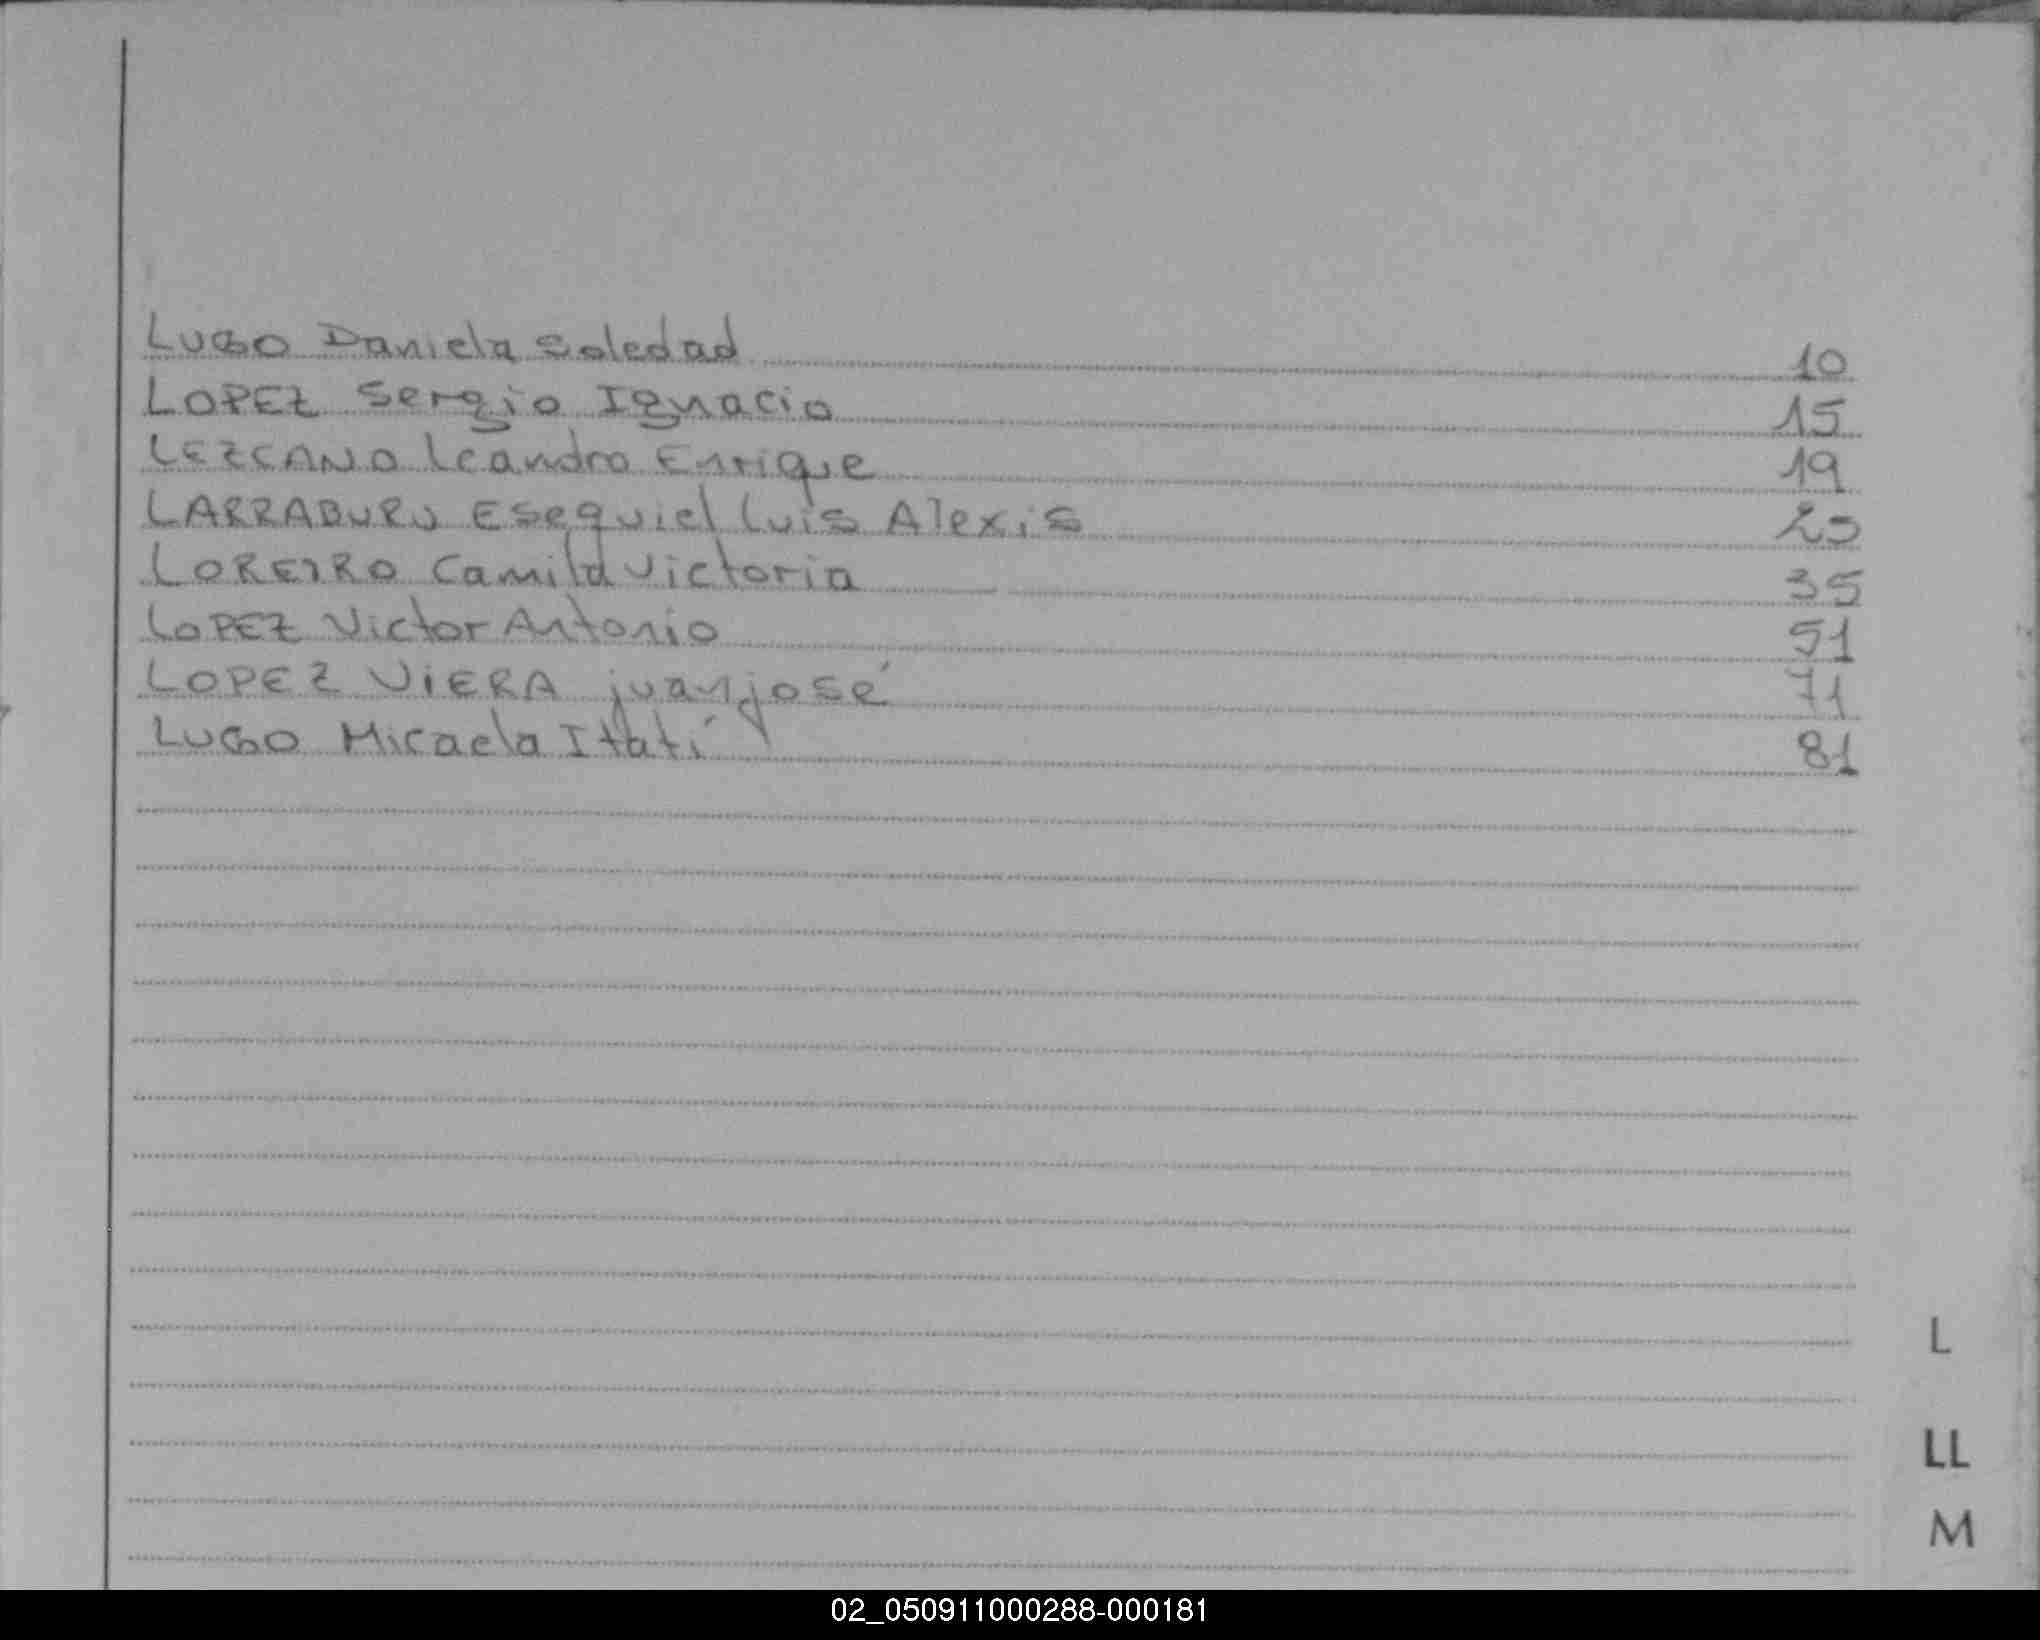 LUGO Daniela Soledad 10
LOPEZ Sergio Ignacio 15
LEZCANO Leandro Enrique 19
LARRABURU Esequiel Luis Alexis
LOREIRO Camila Victoria 35
LOPEZ Victor Antonio 51
LOPEZ VIERA juan josé 71
LUGO Micaela Itatí 81
L
LL
M
02_050911000288-000181